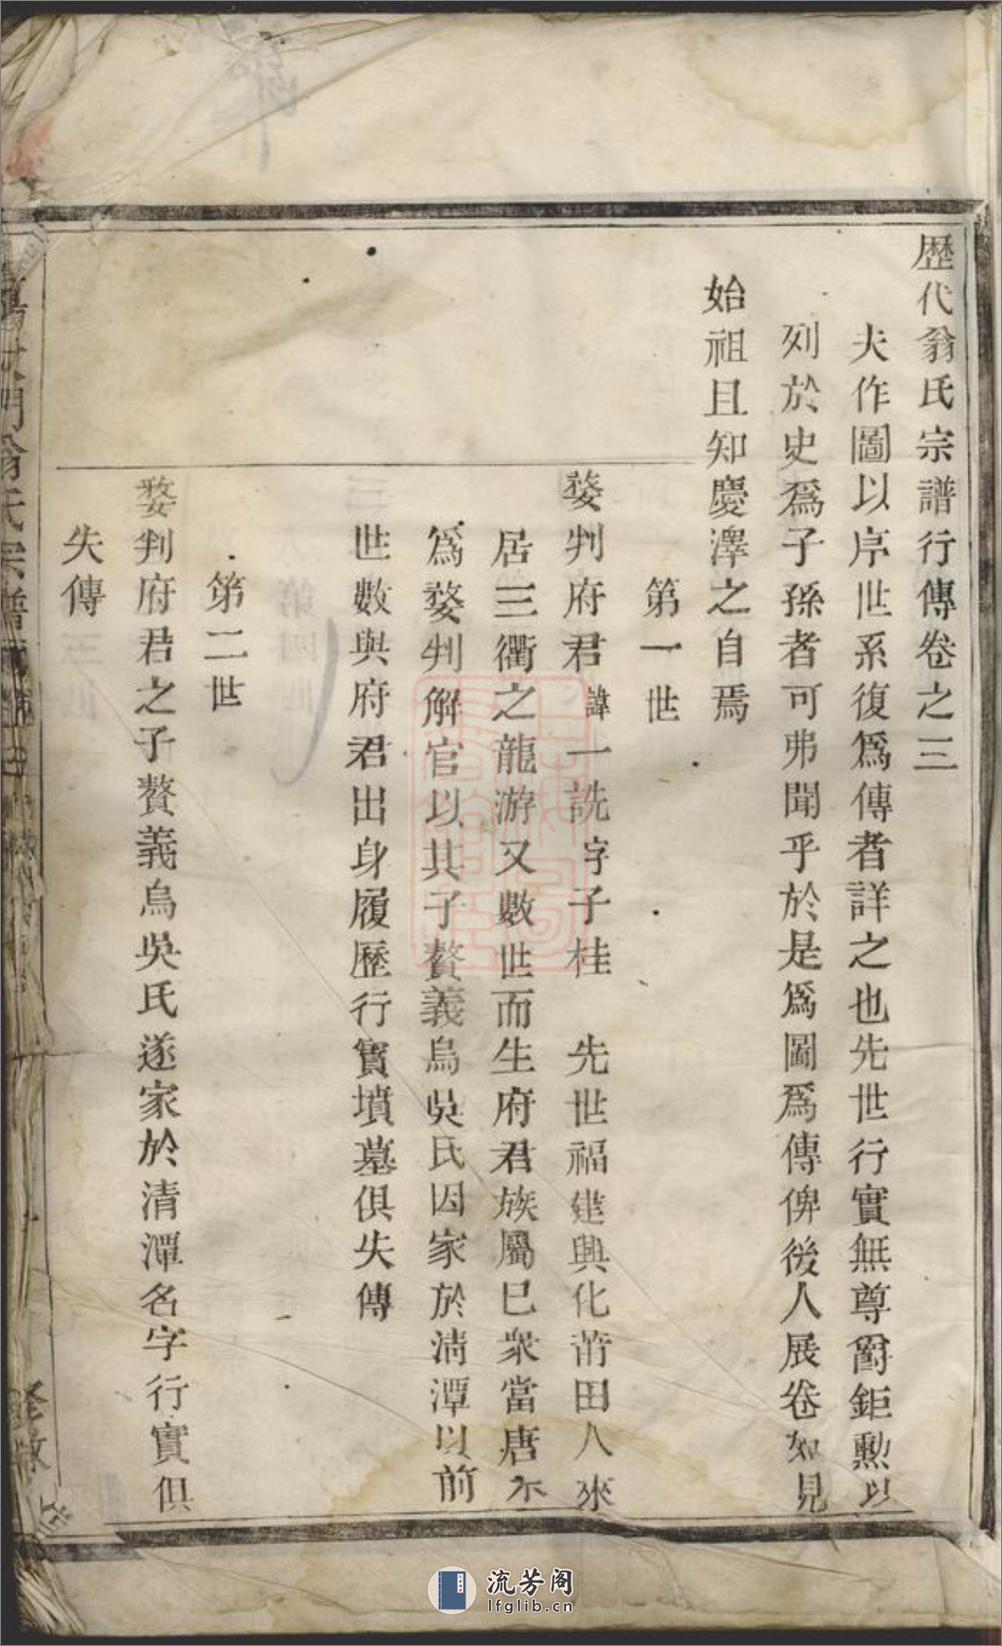 歷代翁氏宗譜行傳卷之三
夫作圖以序世系復爲傳者詳之也先世行實無尊爵鉅勲以
列於史爲子孫者可弗聞乎於是爲圖爲傳俾後人展卷如見
始祖且知慶澤之自焉
第一世
婺判府君諱一詵字子桂 先世福建興化莆田人來
居三衢之龍游又數世而生府君族屬巳衆當唐末
爲婺判解官以其子贅義烏吳氏因家於清潭以前
世數與府君出身履歷行實墳墓俱失傳
第二世
婺判府君之子贅義烏吳氏遂家於清潭名字行實俱
失傳
門翁氏宗譜
流芳阁
lfglib.cn